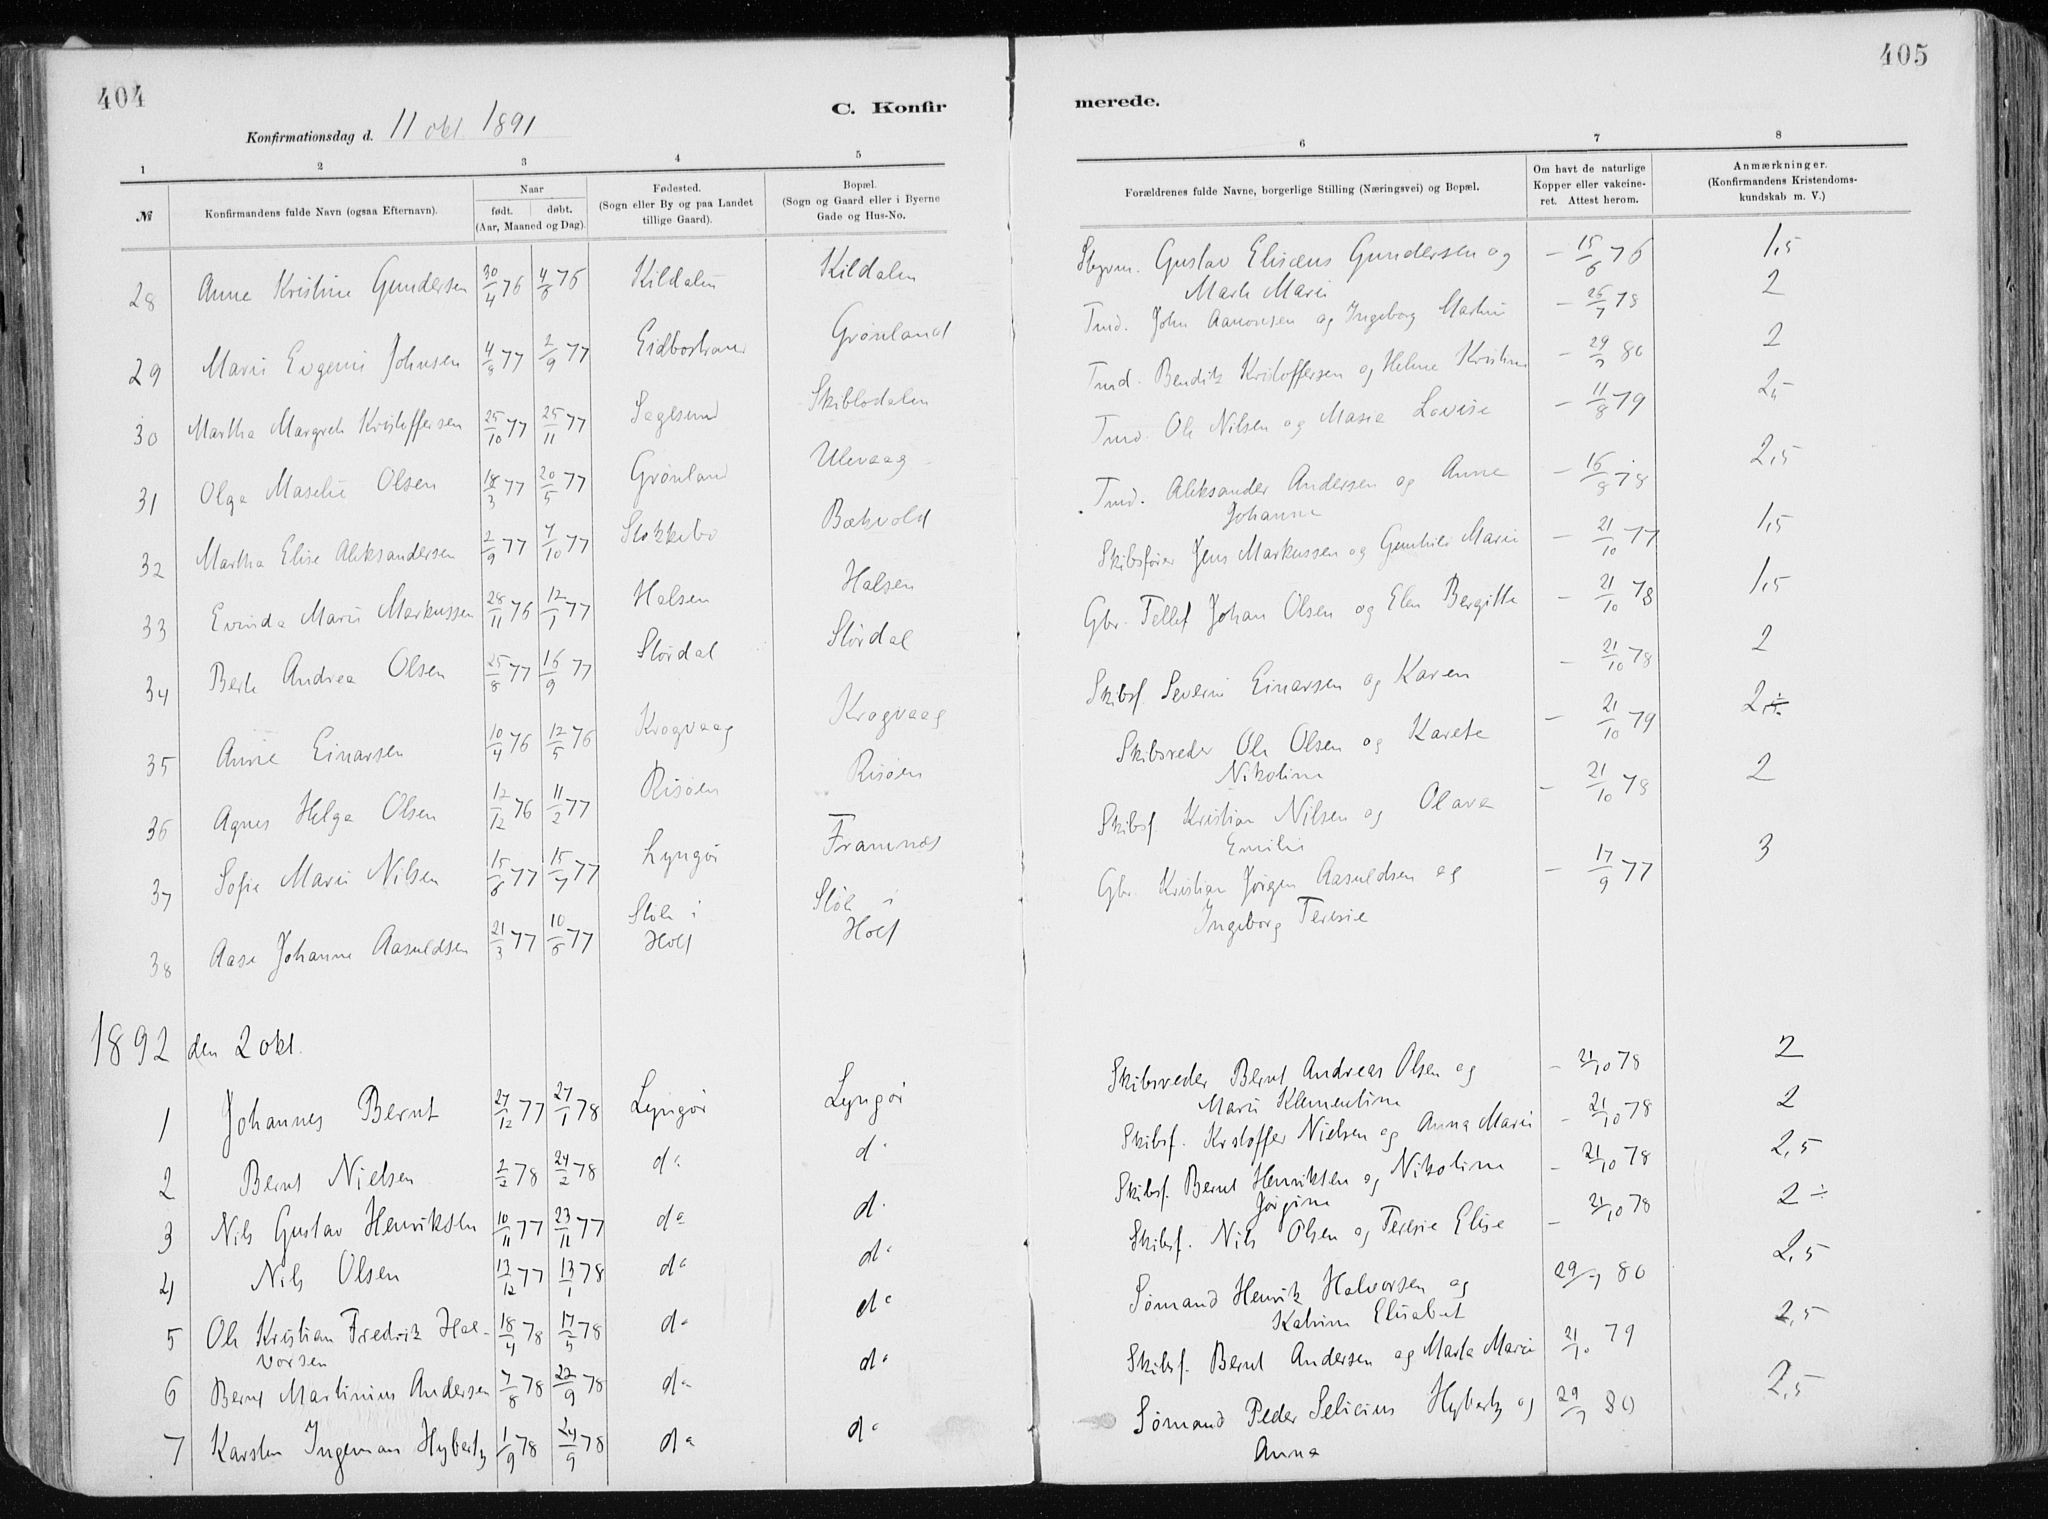 404
405
C. Konfir
merede.
Konfirmationsdag d. 11 okt 1891
1 2 3 4 5 6 7 8
№ Konfirmandens fulde Navn (ogsaa Efternavn). Naar født. døbt. (Aar, Maaned og Dag). Fødested. (Sogn eller By og paa Landet tillige Gaard). Bopæl. (Sogn og Gaard eller i Byerne Gade og Hus-No. Forældrenes fulde Navne, borgerlige Stilling (Næringsvei) og Bopæl. Om havt de naturlige Kopper eller vakcineret. Attest herom. Anmærkninger. (Konfirmandens Kristendomskundskab m. V.)
28 Anne Kristine Gundersen 30/4 76 4/6 76 Kildalen Kildalen Gustav Elisæus Gundersen og – 15/6 76 1,5
Marie
29 Marie Evgenie Johnsen 77 2/9 77 Grønland John Aanonsen og Ingeborg – 26/7 78 2
30 Martha Margrete Kristoffersen 25/10 77 25/11 77 Sagesund Skiblodalen Bendik Kristoffersen og Helene Kristine – 29/7 80 2
31 Olga Maselie Olsen 18/3 77 20/5 77 Grønland Ulevaag Ole Nilsen og Lovise – 11/8 79
32 Martha Elise Aleksandersen 2/9 77 7/10 77 Stokkebo Bækvold Aleksander Andersen og Anne – 16/8 78 2,5
Johanne
33 Marie Markussen 28/11 76 12/1 77 Halsen Halsen Skibsfører Jens Markussen og Marie – 21/10 77 1,5
34 Berte Andrea Olsen 25/8 77 16/9 77 Størdal Størdal Gbr. Tellef Johan Olsen og Elen Bergitte – 21/10 78 1,5
35 Anne Einarsen 10/4 76 12/5 76 Krogvaag Krogvaag Skibsf Severin Einarsen og Karen – 21/10 78 2
36 Agnes Helga Olsen 12/12 76 11/2 77 Risøen Risøen Skibsreder Ole Olsen og Karete – 21/10 79
Nikoline
37 Sofie Marie Nilsen 15/6 77 15/7 77 Lyngør Framnæs Skibsf. Kristian Nilsen og Olava – 21/10 78 2
Emilie
38 Aase Johanne Aasuldsen 21/3 77 10/6 77 Støle i Støle i Gbr. Kristian Jørgen Aasuldsen og – 17/9 77 3
Holt Holt Ingeborg Teresie
1892 den 2 okt.
1 Johannes Bernt 27/12 77 27/1 78 Lyngør Lyngør Skibsreder Bernt Andreas Olsen og – 21/10 78 2
Marie Klementine
2 Bernt Nielsen 2/2 78 24/2 78 do d Skibsf. Krstoffer Nielsen og Anna Marie – 21/10 78 2
3 Nils Gustav Henriksen 10/11 77 23/11 77 do d. Skibsf. Bernt Henriksen og Nikoline – 21/10 78 2,5
Jørgine
4 Nils Olsen 13/12 77 13/1 78 do do Skibsf. Nils Olsen og Teresie Elise – 21/10 78 2 ÷
5 Ole Kristian Fredrik Hal- 18/4 78 17/5 78 do do Sømand Henrik Halvorsen og 29/7 80 2,5
vorsen Katrine Elisabet
6 Bernt Martinius Andersen 7/8 78 22/9 78 do do Skibsf. Bernt Andersen og Marta Marie 21/10 79 2,5
7 Karsten Ingeman Hybertz 1/9 78 24/9 78 do do Sømand Peder Selicius Hybertz og 29/7 80 2,5
Anna